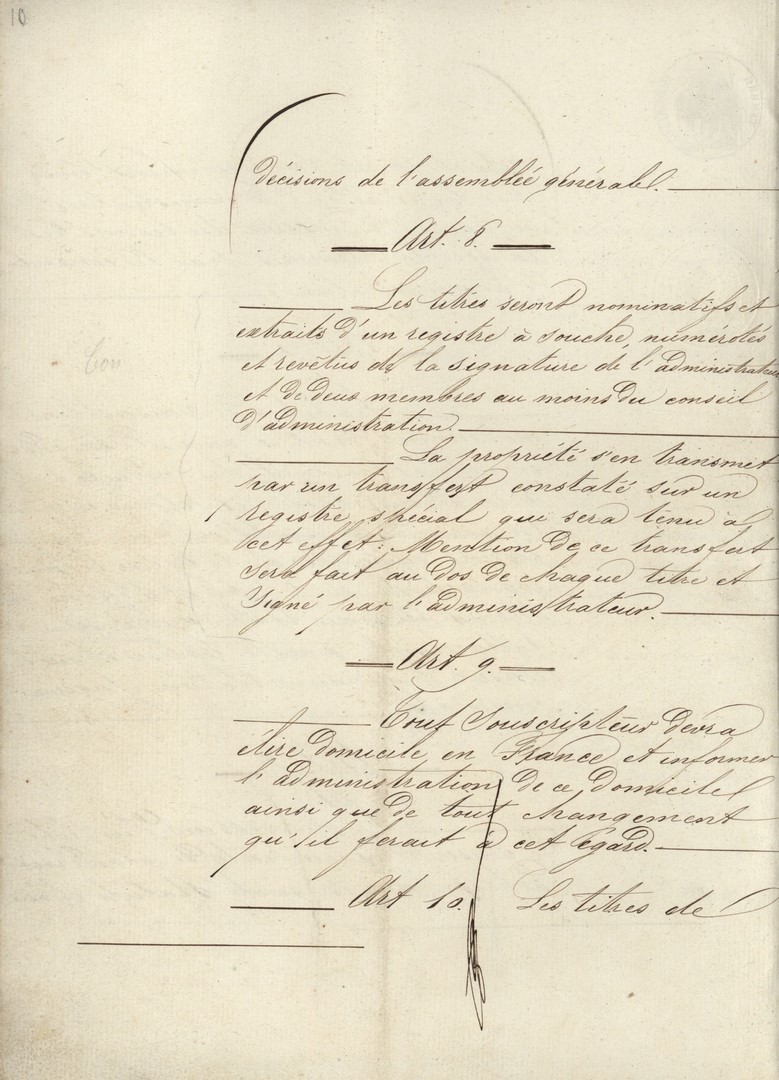 10
décisions de l'assemblée générale.
Art. 8.
Les titres seront nominatifs et
extraits d'un registre à souche, numérotés
et revêtus de la signature de l'administrateur
et de deux membres au moins du conseil
d'administration.
La propriété s'en transmet
par un transfert constaté sur un
registre spécial qui sera tenu à
cet effet. Mention de ce transfert
sera fait au dos de chaque titre et
signé par l'administrateur.
Art. 9.
Tout souscripteur devra
élire domicile en France et informer
l'administration de ce domicile
ainsi que de tout changement
qu'il ferait à cet égard.
Art 10. Les titres de